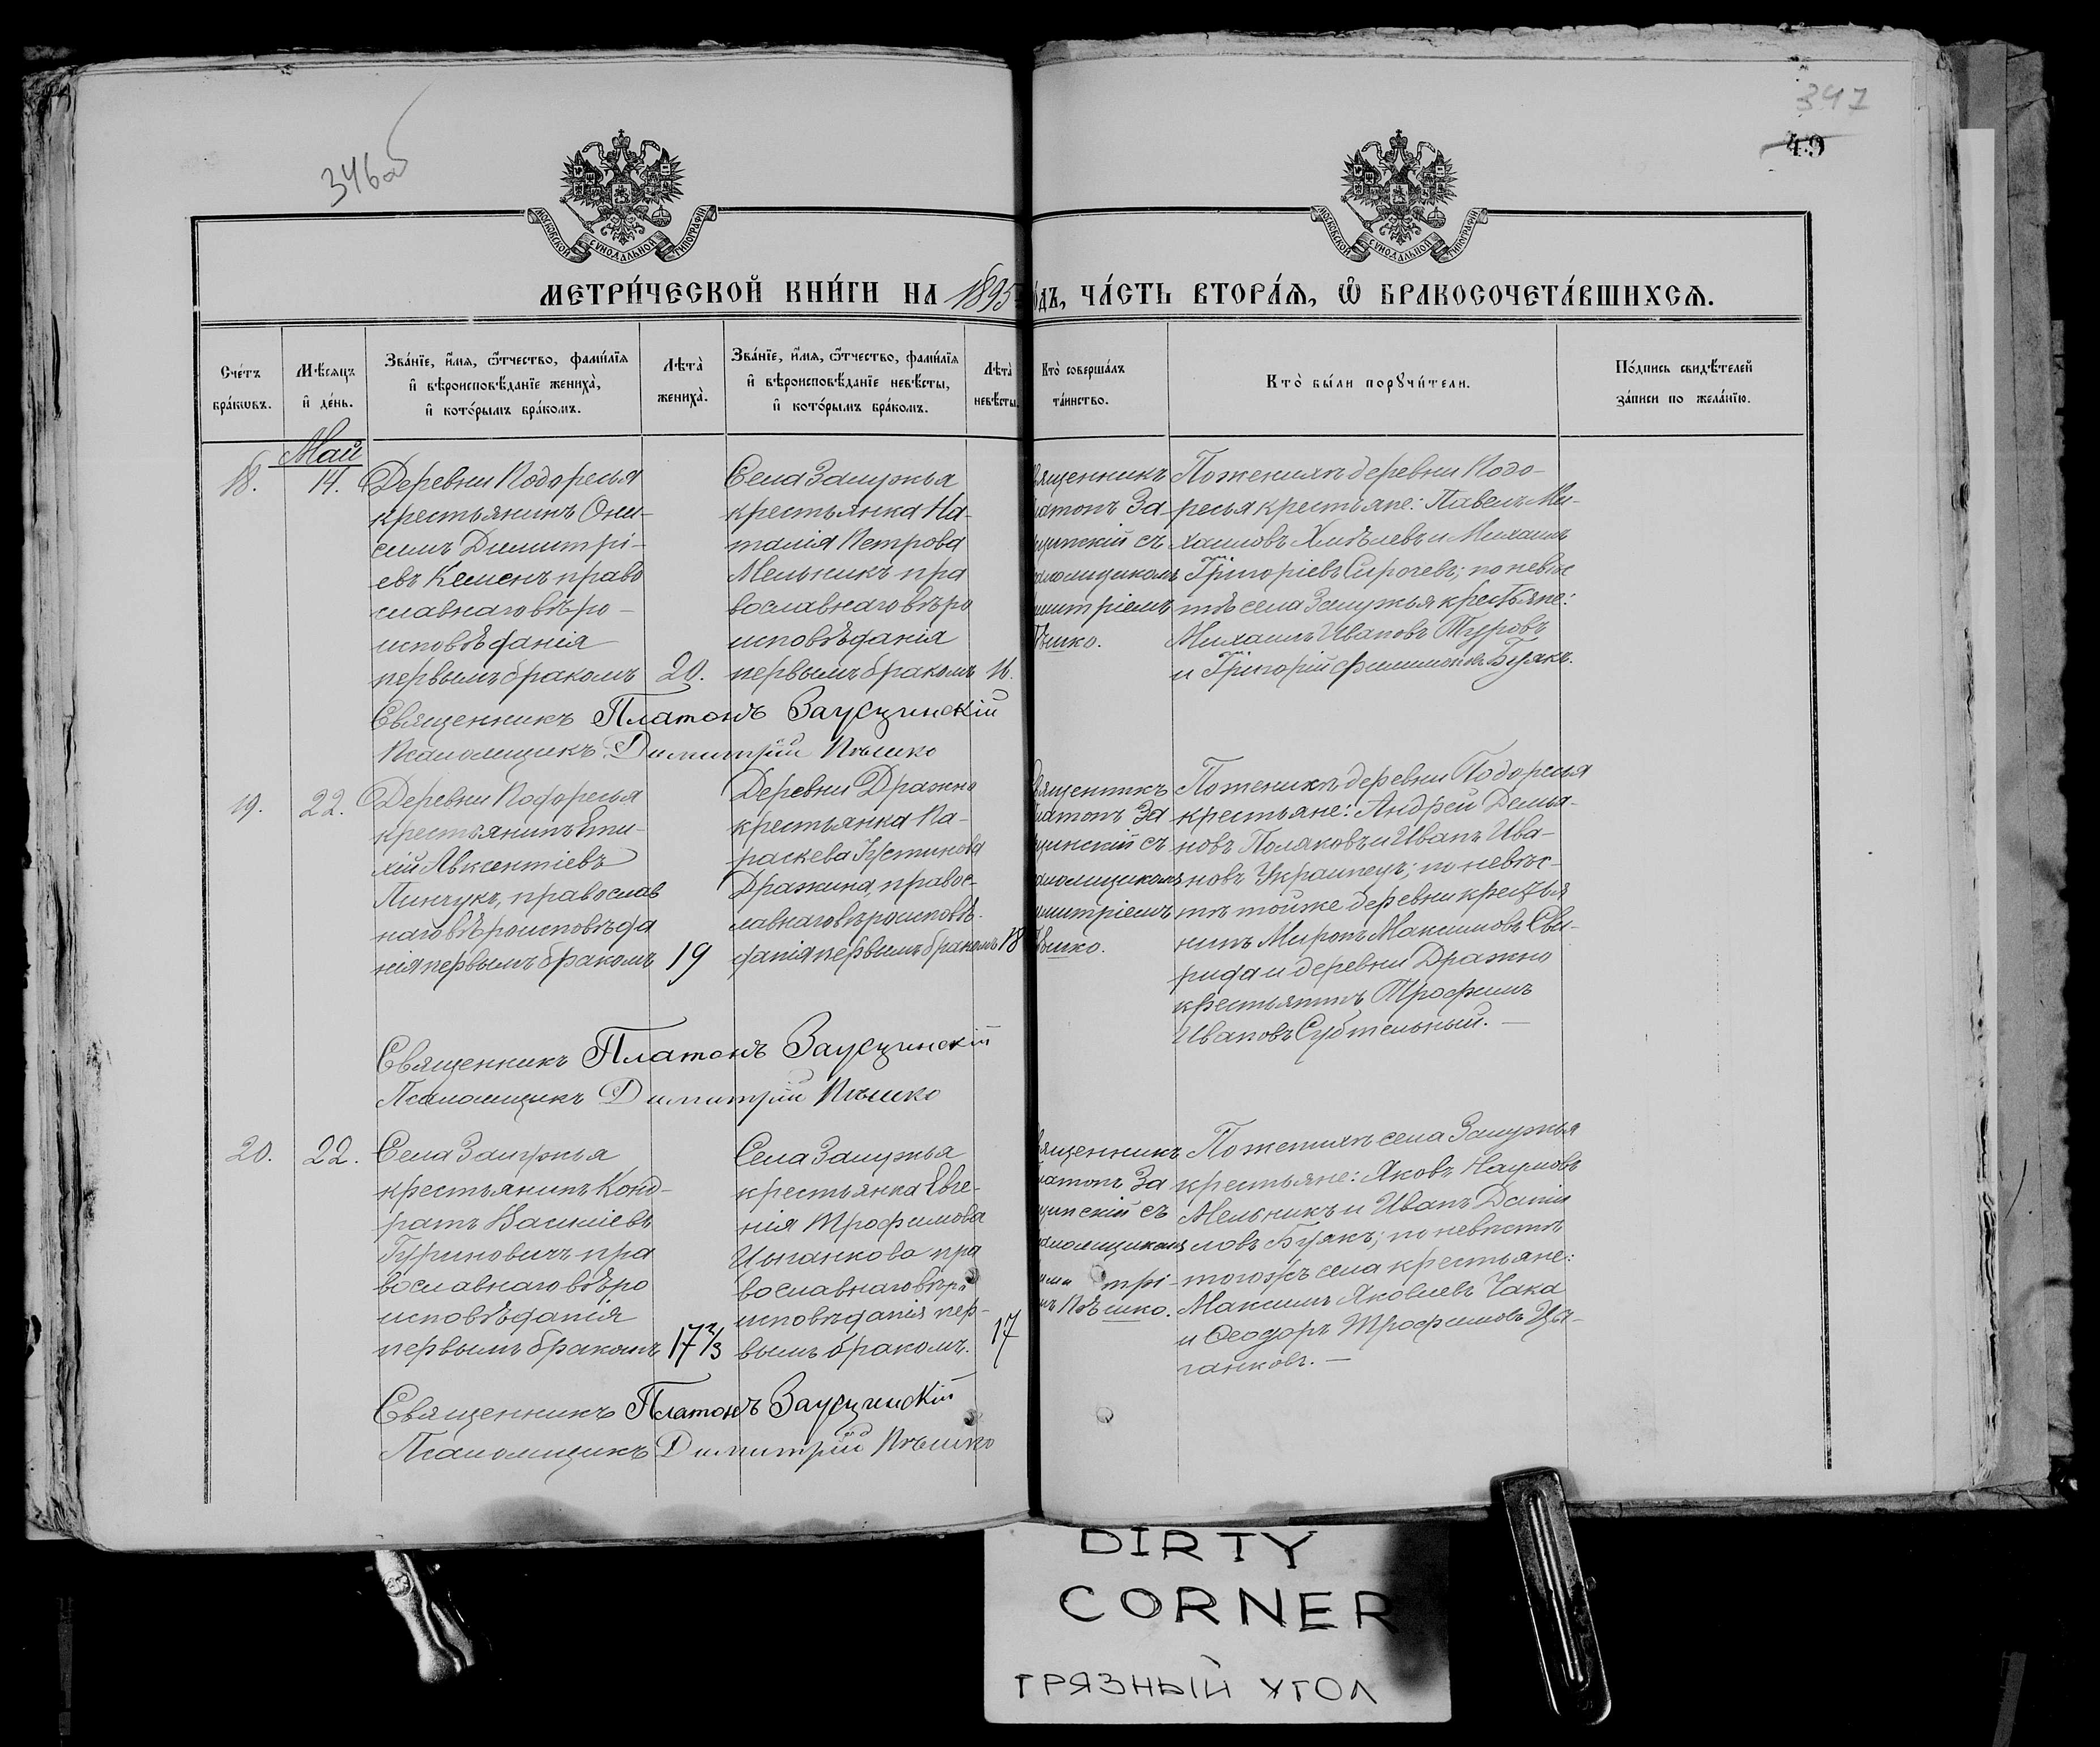 346об
347
49
МОСКОВСКОЙ СУНОДАЛЬНОЙ ТИПОГРАФІИ
МОСКОВСКОЙ СУНОДАЛЬНОЙ ТИПОГРАФІИ
МЕТРИ́ЧЕСКОЙ КНИ́ГИ НА 1895
о́дъ, ЧА́СТЬ ВТОРА́Ѧ, Ѽ БРАКОСОЧЕТА́ВШИХСѦ.
Сче́тъ бра́кѡвъ.
Мѣ́сѧцъ и҆ де́нь.
Зва́нїе, и҆́мѧ, ѻ҆́тчество, фами́лїѧ и҆ вѣроисповѣ́данїе жениха̀, и҆ кото́рымъ бра́комъ.
Лѣта̀ жениха̀.
Зва́нїе, и҆́мѧ, ѻ҆́тчество, фами́лїѧ и҆ вѣроисповѣ́данїе невѣ́сты, и҆ кото́рымъ бра́комъ.
Лѣта̀ невѣ́сты.
Кто̀ соверша́лъ та́инство.
Кто̀ бы́ли порꙋчи́тели.
По́дпись свидѣ́телей за́писи по жела́нїю.
Май
18.
14.
Деревни Подоресья
крестьянинъ Они-
симъ Димитрі-
евъ Кеменъ право
славнаго вѣро-
исповѣданія
первымъ бракомъ
20.
Села Замужья
крестьянка На-
талія Петрова
Мельникъ пра
вославнаго вѣро
исповѣданія
первымъ бракомъ
16.
вященникъ
латонъ За-
щинскій съ
аломщикомъ
имитріемъ
ѣшко.
По женихѣ деревни Подо-
ресья крестьяне: Павелъ Ми-
хаиловъ Хмѣлевъ и Михаилъ
Григоріевъ Сирочевъ; по невѣс
тѣ села Замужья крестьяне:
Михаилъ Ивановъ Туровъ
и Григорій Филимоновъ Бузякъ.
Священникъ Платонъ Заусцинскій
Псаломщикъ Димитрій Пѣшко
19.
22.
Деревни Подоресья
крестьянинъ Епи-
хій Авксентіевъ
Пинчукъ, православ
наго вѣроисповѣда
нія первымъ бракомъ
19
Деревни Дражно
крестьянка Па-
раскева Іустинова
Дражина, правос-
лавнаго вѣроисповѣ-
данія первымъ бракомъ
18
вященникъ
латонъ За
щинскій съ
аломщикомъ
имитріемъ
ѣшко.
По женихѣ деревни Подоресья
крестьяне: Андрей Демья-
новъ Поляковъ и Иванъ Ива-
новъ Украинецъ; по невѣс-
тѣ тойже деревни крестья
нинъ Миронъ Максимовъ Сви-
рида и деревни Дражно
крестьянинъ Трофимъ
Ивановъ Субтельный. —
Священникъ Платонъ Заусцинскій
Псаломщикъ Димитрій Пѣшко
20.
22.
Села Замужья
крестьянинъ Конд-
ратъ Василіевъ
Гуриновичъ пра
вославнаго вѣро
исповѣданія
первымъ бракомъ
17 ⅔
Села Замужья
крестьянка Евге-
нія Трофимова
Цыганкова пра
вославнаго вѣро
исповѣданія пер-
вымъ бракомъ.
17
вященникъ
латонъ За
щинскій съ
аломщикомъ
ими трі-
мъ Пѣшко.
По женихѣ села Замужья
крестьяне: Яковъ Наумовъ
Мельникъ и Иванъ Даніи
ловъ Бузякъ; по невѣстѣ
тогожъ села крестьяне:
Максимъ Яковлевъ Чака
и Ѳеодоръ Трофимовъ Цы-
ганковъ. —
Священникъ Платонъ Заусцинскій
Псаломщикъ Димитрій Пѣшко
DIRTY
CORNER
ГРЯЗНЫЙ УГОЛ